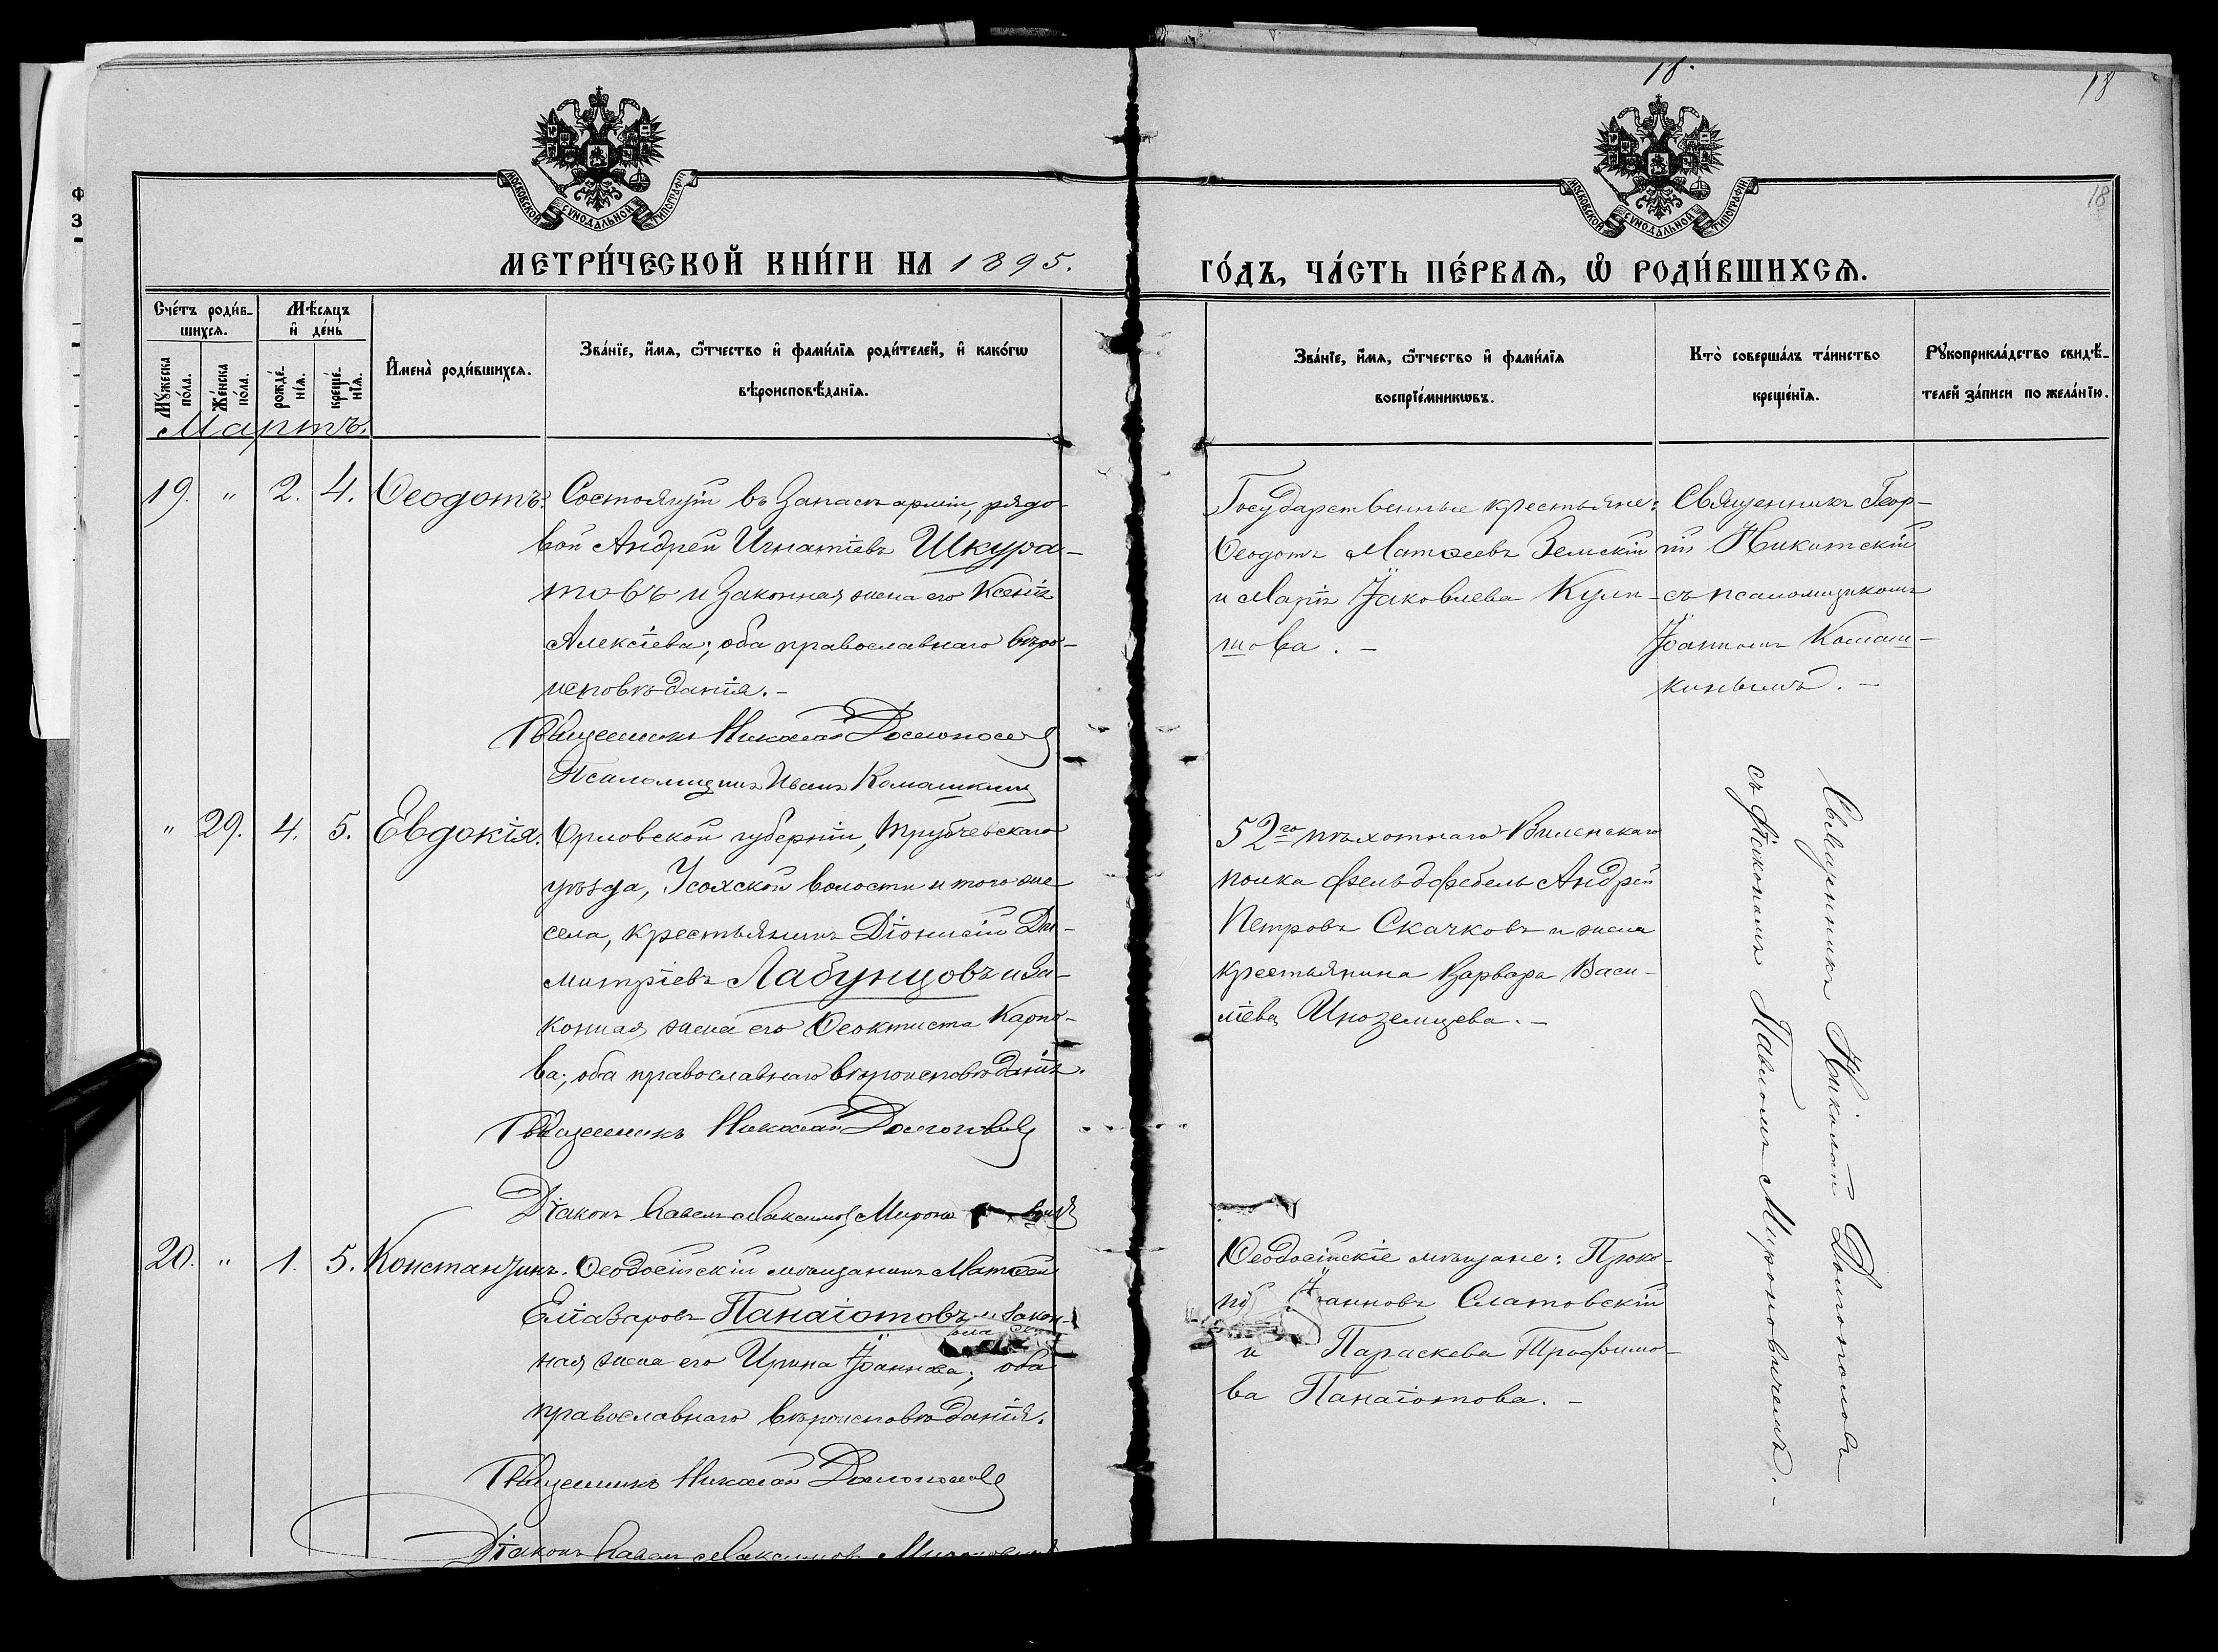 18.
18
18
МОСКОВСКОЙ СѴНОДАЛЬНОЙ ТИПОГРАФІИ
МОСКОВСКОЙ СѴНОДАЛЬНОЙ ТИПОГРАФІИ
МЕТРИ́ЧЕСКОЙ КНИ́ГИ НА 1895.
ГО́ДЪ, ЧА́СТЬ ПЕ́РВАѦ, Ѡ҆ РОДИ́ВШИХСѦ.
Сче́тъ роди́в-
шихсѧ.
Мꙋ́жеска
по́ла.
Же́нска
по́ла.
Мѣ́сѧцъ
и҆ де́нь
рожде́-
нїѧ.
креще́-
нїѧ.
И҆мена̀ роди́вшихсѧ.
Зва́нїе, и҆́мѧ, ѻ҆́тчество и҆ фами́лїѧ роди́телей, и҆ како́гѡ
вѣроисповѣ́данїѧ.
Зва́нїе, и҆́мѧ, ѻ҆́тчество и҆ фами́лїѧ
воспрїе́мникѡвъ.
Кто̀ соверша́лъ та́инство
креще́нїѧ.
Рꙋкоприкла́дство свидѣ́-
телей за́писи по жела́нїю.
Мартъ.
19. " 2. 4. Ѳеодотъ.
Состоящій въ запасѣ арміи, рядо-
вой Андрей Игнатіевъ Шкура-
товъ и законная жена его Ксенія
Алексіева; оба православнаго вѣро-
исповѣданія.-
Священникъ Николай Долгополов
Псаломщикъ Иванъ Комашкин
Государственные крестьяне:
Ѳеодотъ Матѳеевъ Земскій
и Марія Іаковлева Кули-
шова. -
Священникъ Геор-
гій Никитскій
съ псаломщикомъ
Іоанномъ Комаш-
кинымъ. -
" 29. 4. 5. Евдокія.
Орловской губерніи, Трубчевскаго
уѣзда, Усохской волости и того же
села, крестьянинъ Діонисій Ди-
митріевъ Лабунцовъ и за-
конная жена его Ѳеоктиста Карпо-
ва; оба православнаго вѣроисповѣданія.
Священникъ Николай Долгополов
Діаконъ Павелъ Максимов Мироно
52го пѣхотнаго Виленскаго
полка фельдфебель Андрей
Петровъ Скачковъ и жена
крестьянина Варвара Васи-
ліева Иноземцева. -
Священникъ Николай Долгополовъ
съ діакономъ Павломъ Мироновичемъ. -
20. " 1. 5. Константинъ.
Ѳеодосійскій мѣщанинъ Матѳей
Еліазаровъ Панаіотовъ и закон-
ная жена его Ирина Іоаннова; оба
православнаго вѣроисповѣданія.
Священникъ Николай Долгополов
Діаконъ Павелъ Максимов Миронович
Ѳеодосійскіе мѣщане: Проко-
пій Іоанновъ Слатовскій
и Параскева Трофимо-
ва Панаіотова. -